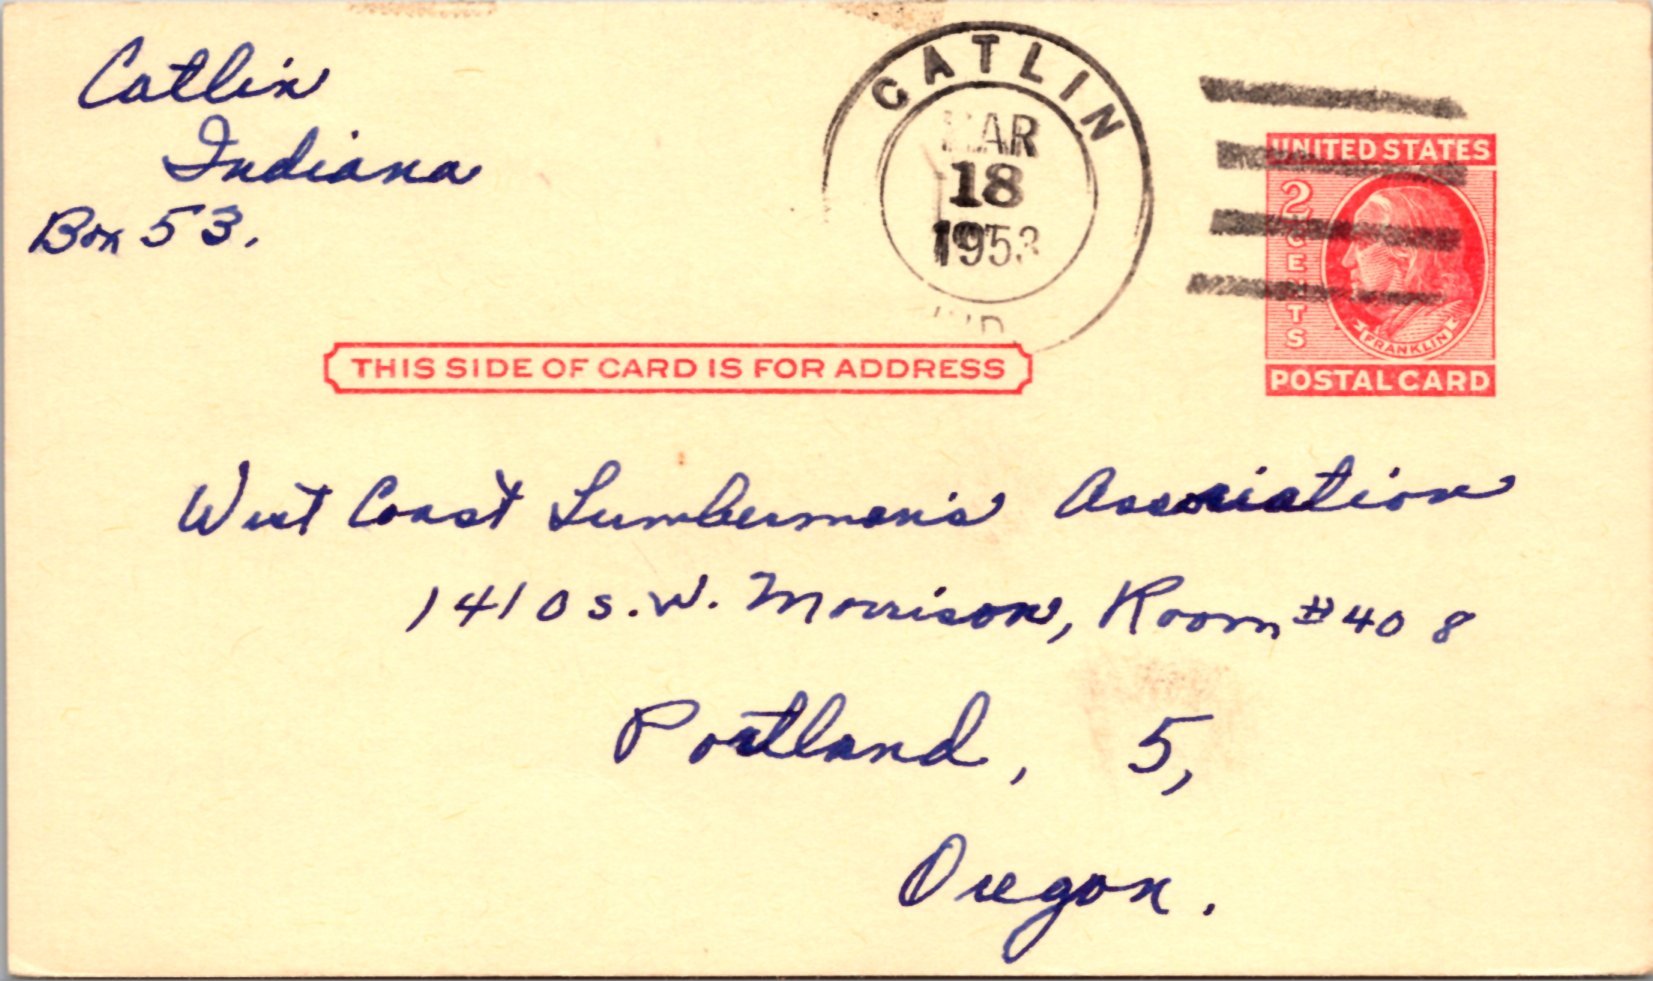 Catlin
Indiana
Box 53.
CATLIN
MAR
18
1953
IND.
UNITED STATES
2 CENTS
FRANKLIN
POSTAL CARD
THIS SIDE OF CARD IS FOR ADDRESS
West Coast Lumbermen's Association
1410 S.W. Morrison, Room #408
Portland, 5,
Oregon.